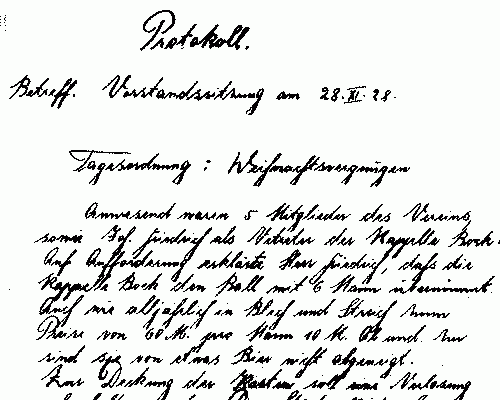 Protokoll.
Betreff. Vorstandssitzung am 28. XI. 28.
Tagesordnung : Weihnachtsvergnügen
Anwesend waren 5 Mitglieder des Vereins,
sowie Joh. Friedrich als Vetreter der Kappelle Bock.
Auf Aufforderung erklärte Herr Friedrich, dafs die
Kappelle Bock den Ball mit 6 Mann übernimmt.
Auch wie alljährlich in Blech und Streich zum
Preise von 60 M. pro Mann 10 M. und. Zu
sind sie von etwas Bier nicht abgeneigt.
Zur Deckung der Kosten soll eine Verlosung